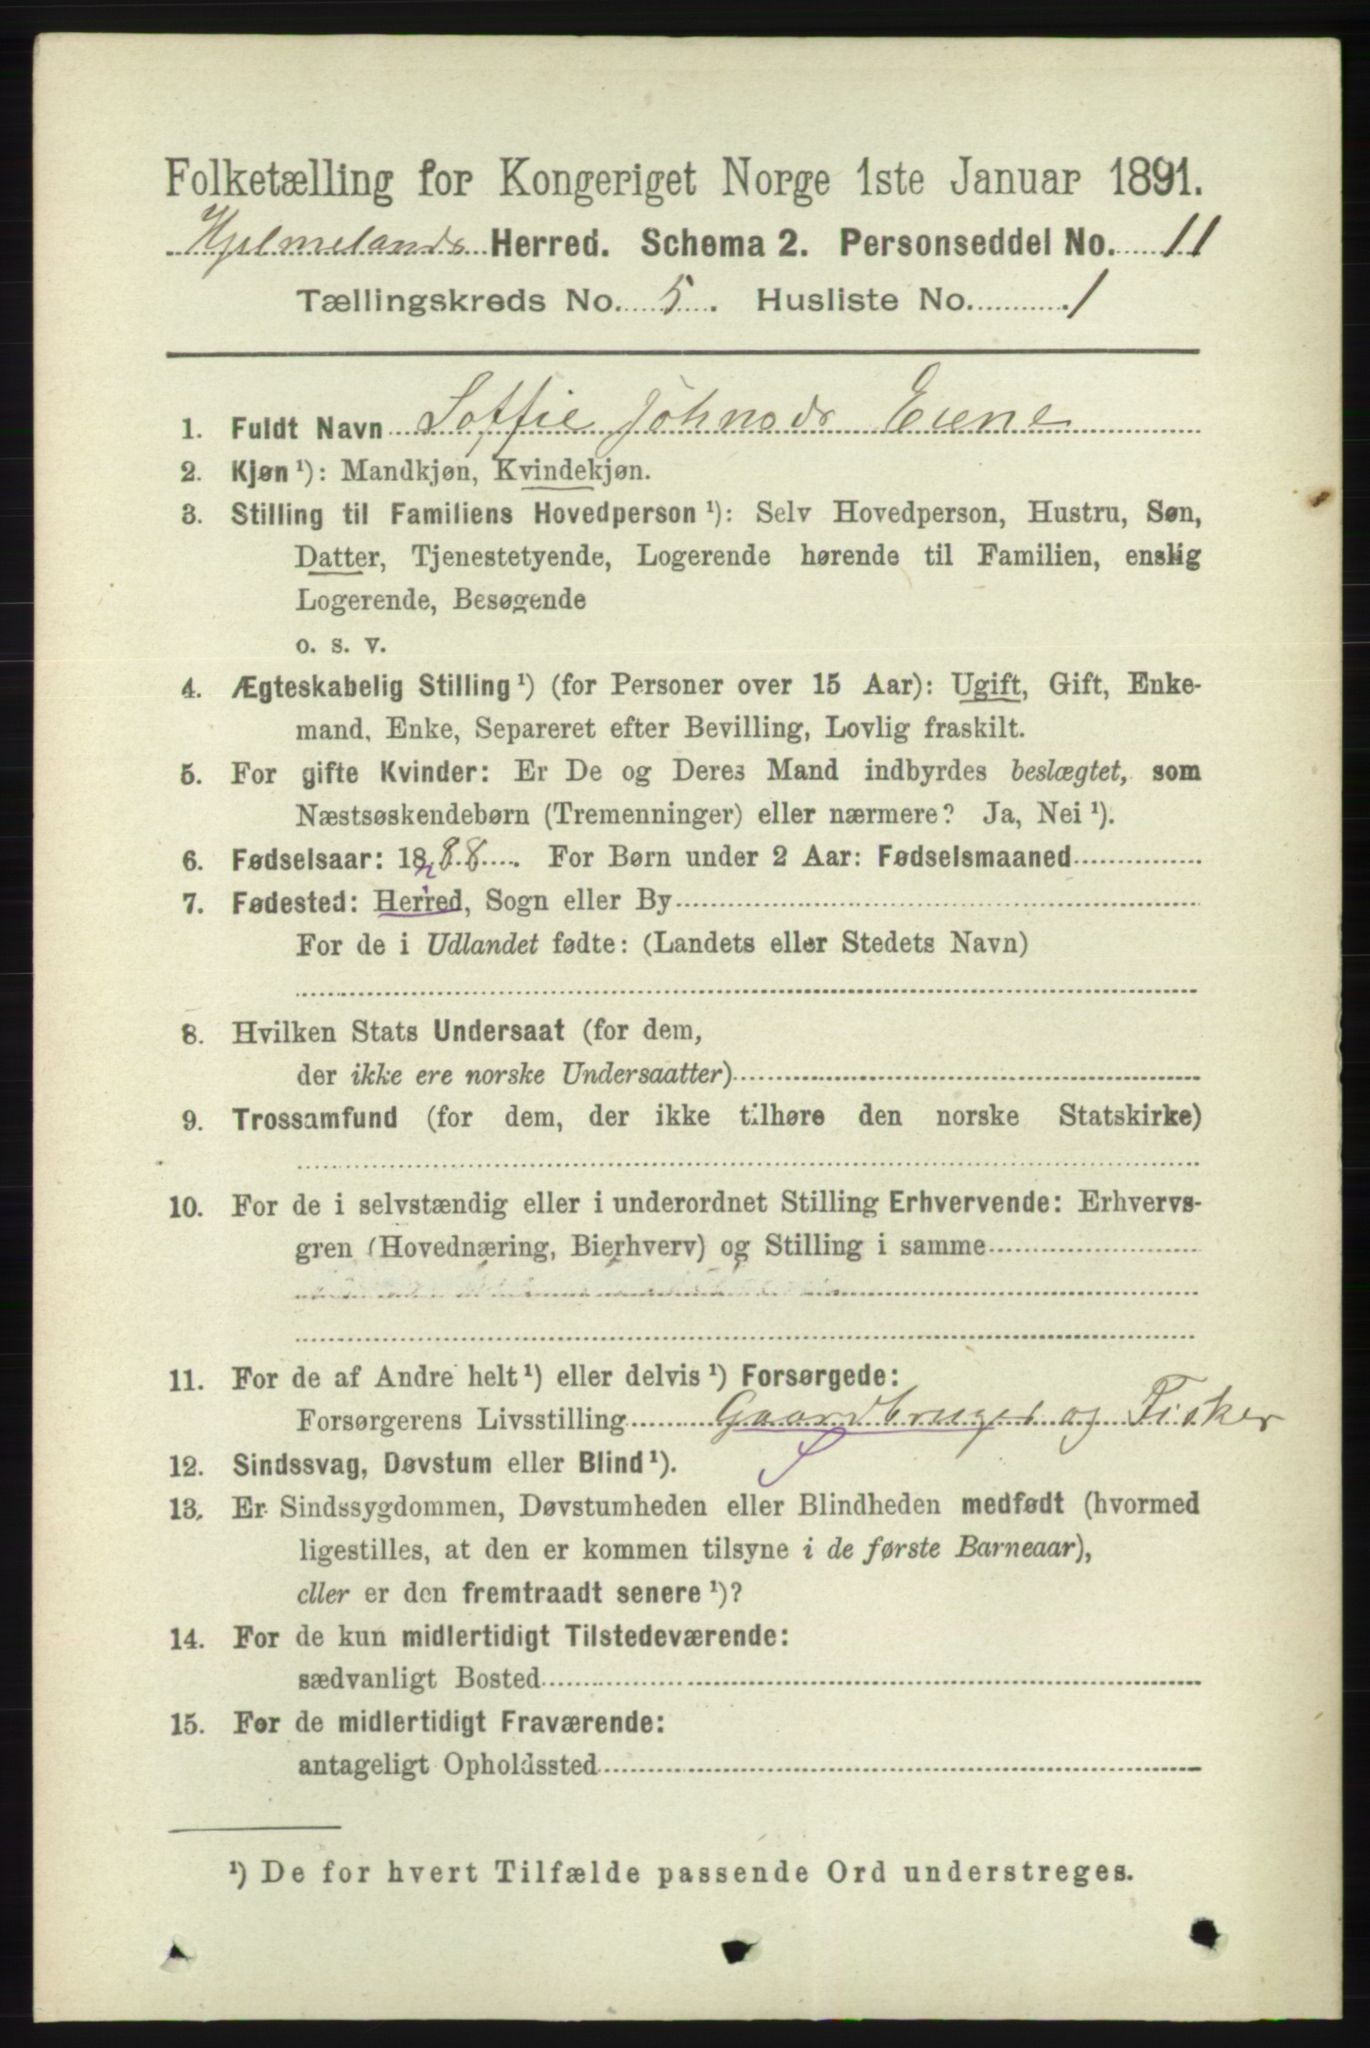 Folketælling for Kongeriget Norge 1ste Januar 1891.
Hjelmelands Herred. Schema 2. Personseddel No. 11
Tællingskreds No. 5. Husliste No. 1
1. Fuldt Navn Soffie Johnsdr Eiene
2. Kjøn ¹): Mandkjøn, Kvindekjøn.
3. Stilling til Familiens Hovedperson ¹): Selv Hovedperson, Hustru, Søn,
Datter, Tjenestetyende, Logerende hørende til Familien, enslig
Logerende, Besøgende
o. s. v.
4. Ægteskabelig Stilling ¹) (for Personer over 15 Aar): Ugift, Gift, Enke-
mand, Enke, Separeret efter Bevilling, Lovlig fraskilt.
5. For gifte Kvinder: Er De og Deres Mand indbyrdes beslægtet, som
Næstsøskendebørn (Tremenninger) eller nærmere? Ja, Nei ¹).
6. Fødselsaar: 1888. For Børn under 2 Aar: Fødselsmaaned
7. Fødested: Herred, Sogn eller By
For de i Udlandet fødte: (Landets eller Stedets Navn)
8. Hvilken Stats Undersaat (for dem,
der ikke ere norske Undersaatter)
9. Trossamfund (for dem, der ikke tilhøre den norske Statskirke)
10. For de i selvstændig eller i underordnet Stilling Erhvervende: Erhvervs-
gren (Hovednæring, Bierhverv) og Stilling i samme
11. For de af Andre helt ¹) eller delvis ¹) Forsørgede:
Forsørgerens Livsstilling Gaardbruger og Fisker
12. Sindssvag, Døvstum eller Blind ¹). S
13. Er Sindssygdommen, Døvstumheden eller Blindheden medfødt (hvormed
ligestilles, at den er kommen tilsyne i de første Barneaar),
eller er den fremtraadt senere ¹)?
14. For de kun midlertidigt Tilstedeværende:
sædvanligt Bosted
15. For de midlertidigt Fraværende:
antageligt Opholdssted
¹) De for hvert Tilfælde passende Ord understreges.